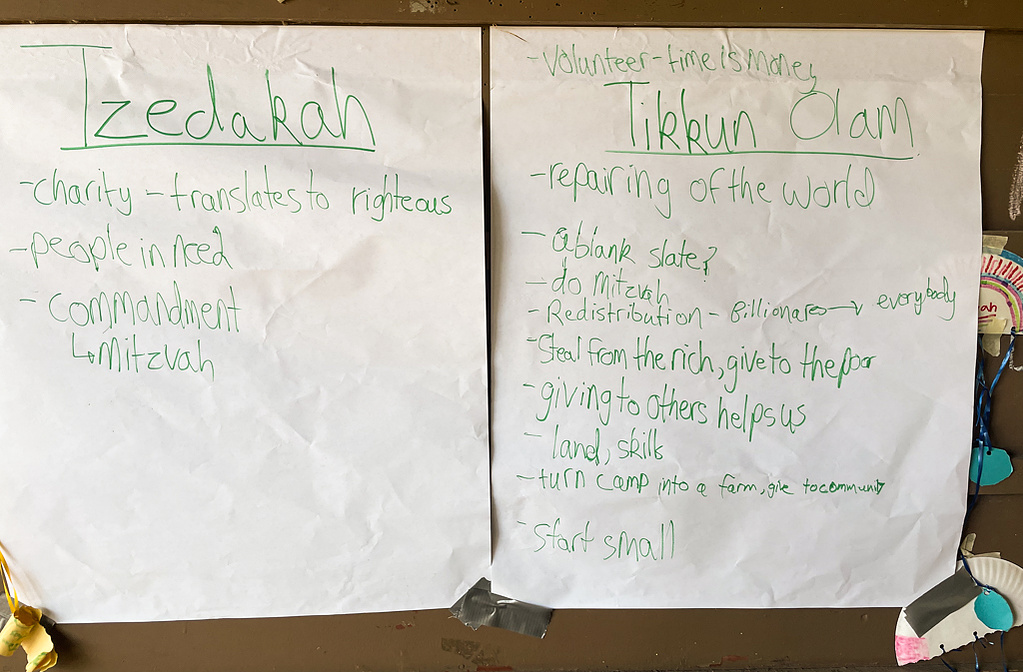 Tzedakah
- charity - translates to righteous
- people in need
- commandment
↳ mitzvah
- Volunteer - time is money
Tikkun Olam
- repairing of the world
- a blank slate?
- do mitzvah
- Redistribution - Billionares → everybody
- Steal from the rich, give to the poor
- giving to others helps us
- land, skills
- turn camp into a farm, give to community
- start small
ah